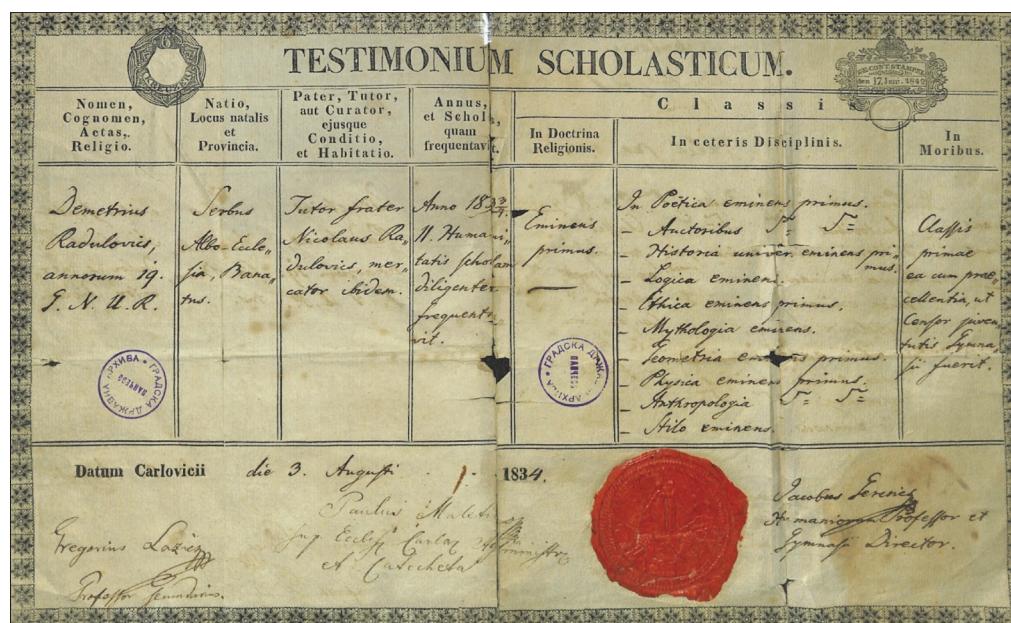 TESTIMONIUM SCHOLASTICUM.
den 17. Jan. 1842
Nomen,
Cognomen,
Aetas,
Religio.
Natio,
Locus natalis
et
Provincia.
Pater, Tutor,
aut Curator,
ejusque
Conditio,
et Habitatio.
Annus,
et Schola,
quam
frequentavit.
Classis
In Doctrina
Religionis.
In ceteris Disciplinis.
In
Moribus.
Demetrius
Radulovics,
annorum 19.
G. N. U. R.
Serbus
Albo-Eccle„
sia, Bana„
tus.
Tutor frater
Nicolaus Ra„
dulovics, mer„
cator ibidem.
Anno 1833/4.
II. Humani„
tatis scholam
diligenter
frequenta„
vit.
Eminens
primus.
In Poetica eminens primus.
- Auctoribus
- Historia univer. eminens pri„
mus.
- Logica eminens.
- Ethica eminens primus.
- Mythologia eminens.
- Geometria eminens primus.
- Physica eminens primus.
- Anthropologia
- Stilo eminens.
Classis
primae
ea cum prae„
cellentia, ut
Censor juven„
tutis Gymna„
sii fuerit.
ГРАДСКА ДРЖАВНА АРХИВА
ПАНЧЕВО
ГРАДСКА ДРЖАВНА АРХИВА
ПАНЧЕВО
Datum Carlovicii die 3. Augusti 1834.
Paulus
et Catecheta
Gregorius Lazics
Professor
Jacobus Gerčics
Humaniorum Professor et
Gymnasii Director.